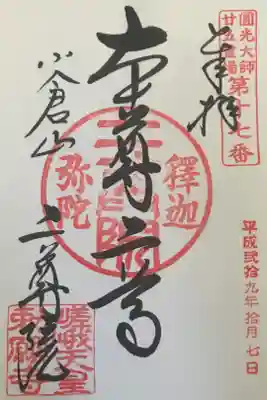 圓光大師
廿五霊場
第十七番
奉拝
平成弐拾九年拾月七日
本尊二尊
釋迦
弥陀
小倉山
二尊院
嵯峨天皇